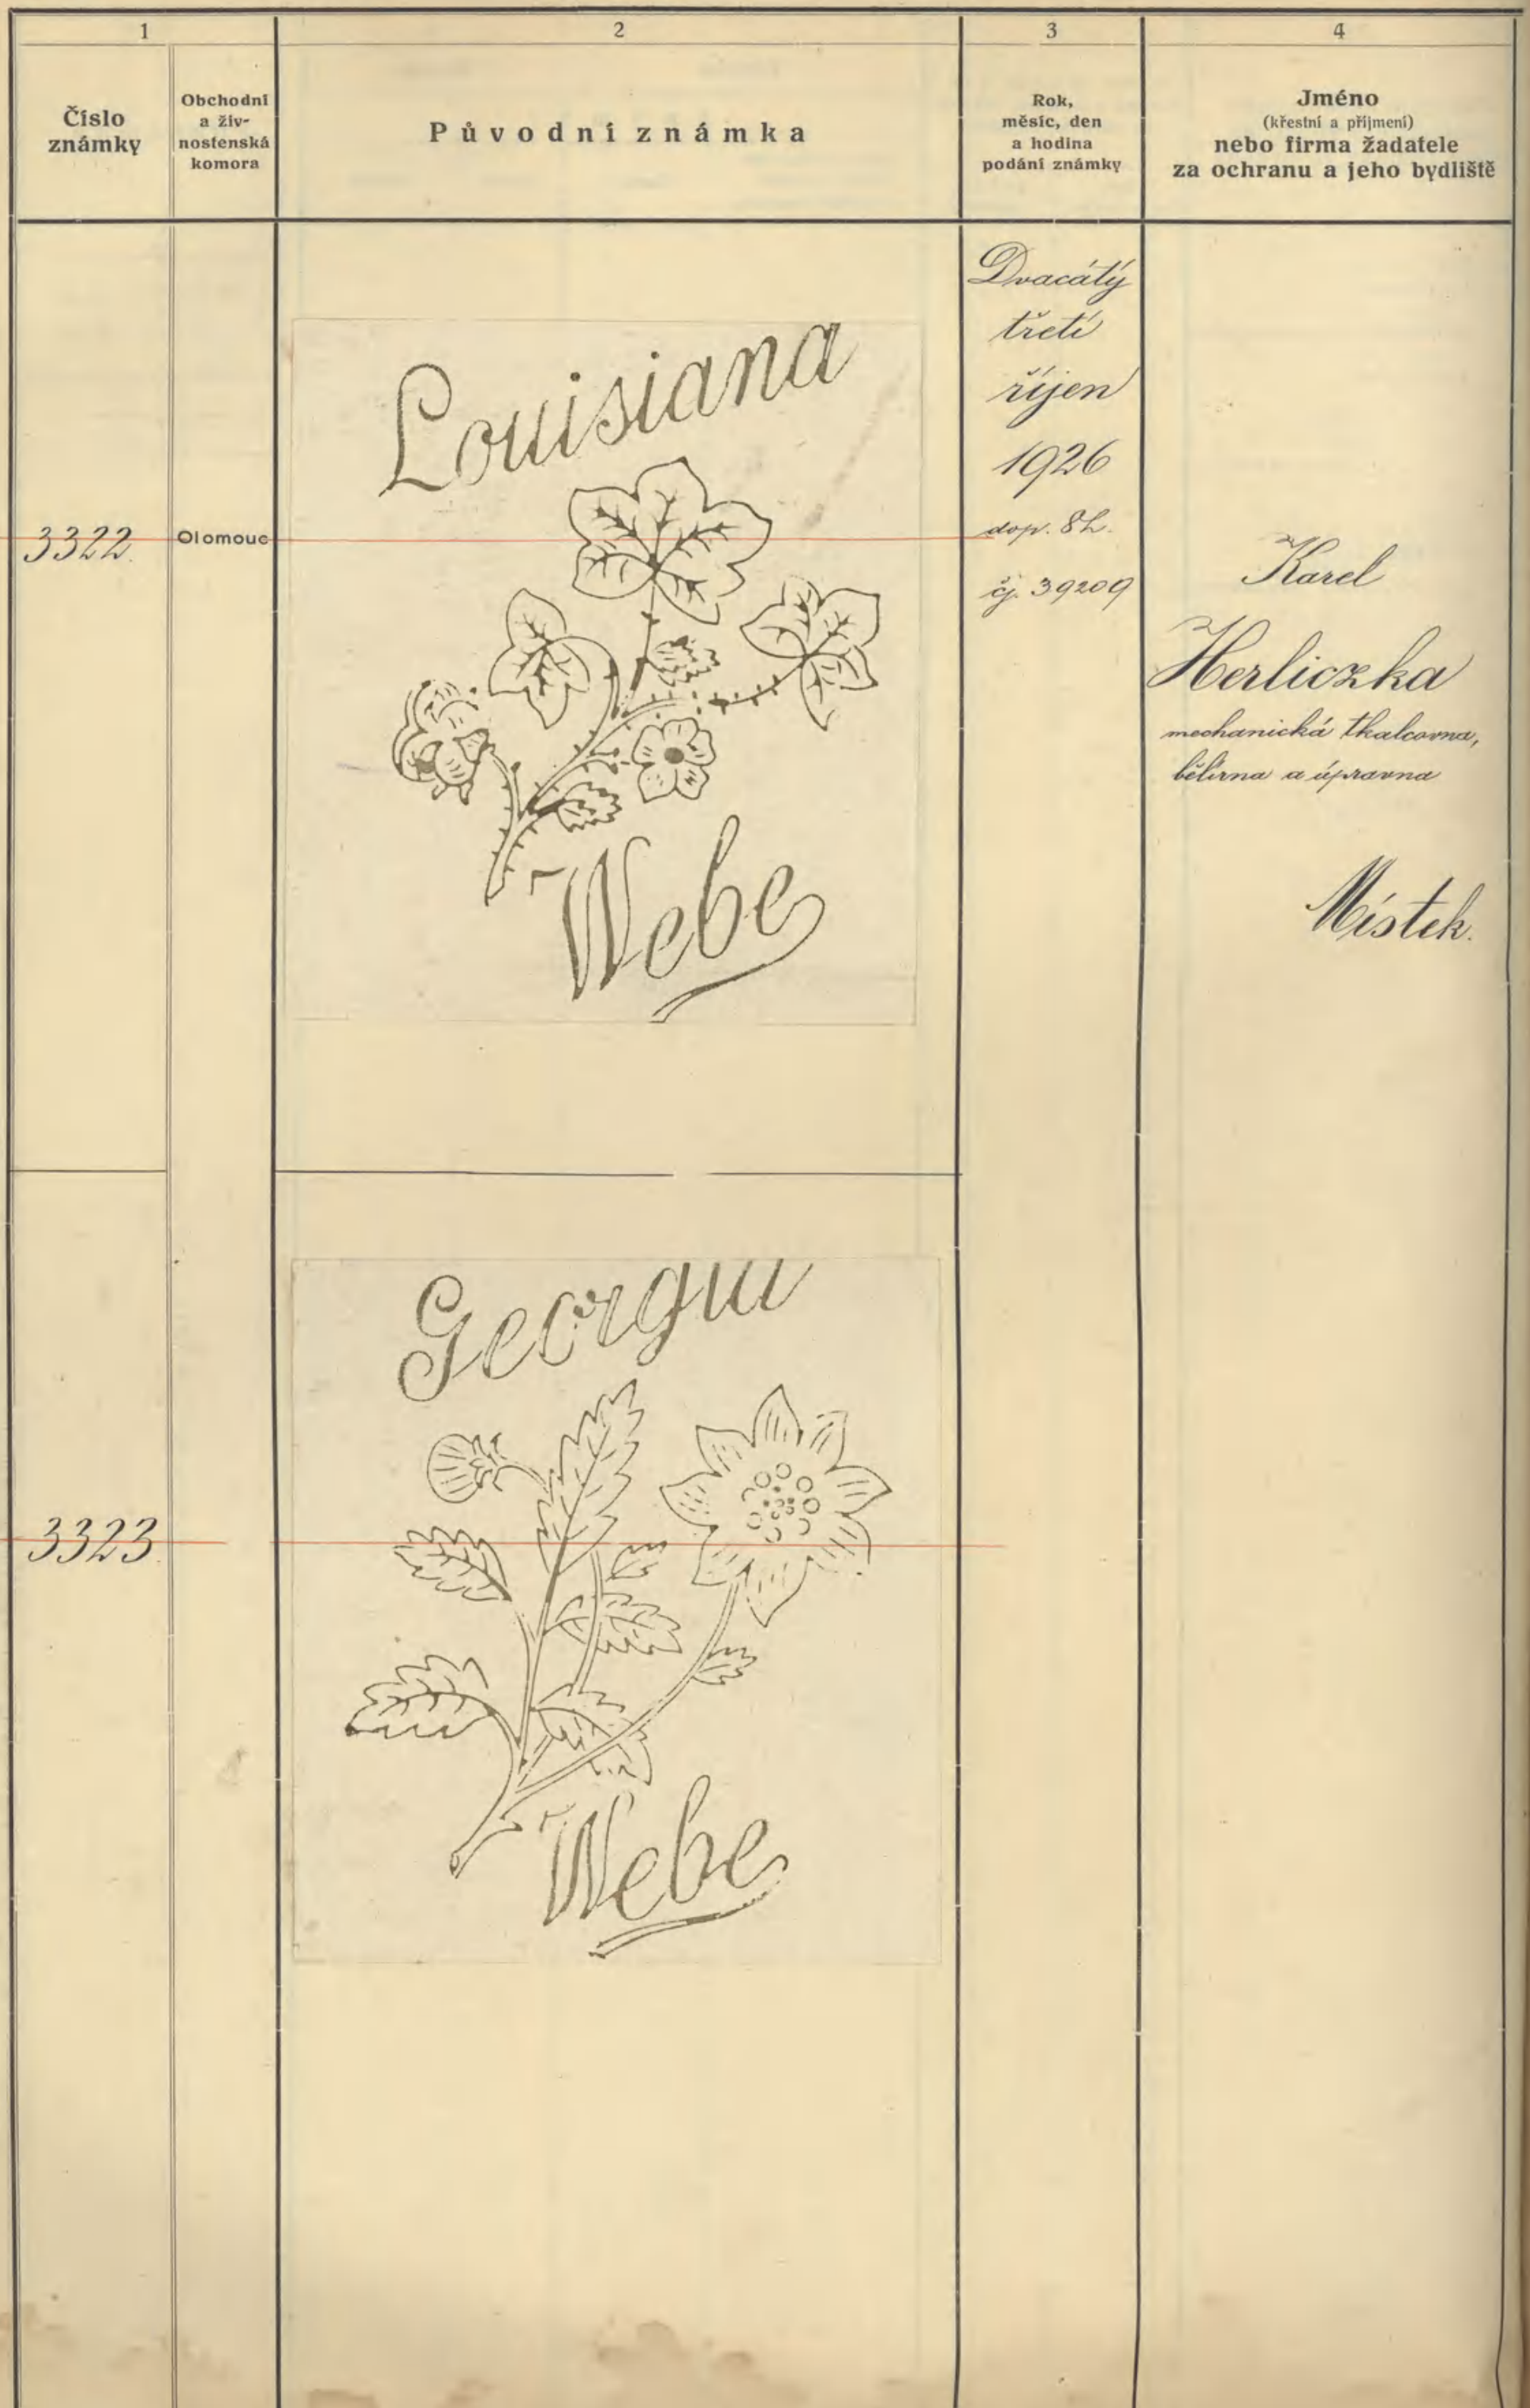 1
2
3
4
Číslo
známky
Obchodní
a živ-
nostenská
komora
Původní známka
Rok,
měsíc, den
a hodina
podání známky
Jméno
(křestní a příjmení)
nebo firma žadatele
za ochranu a jeho bydliště
3322.
Olomouc
Louisiana
Webe
Dvacátý
třetí
říjen
1926
dop. 8h.
čj. 39209
Karel
Herliczka
mechanická tkalcovna,
bělírna a úpravna
Místek.
3323.
Webe